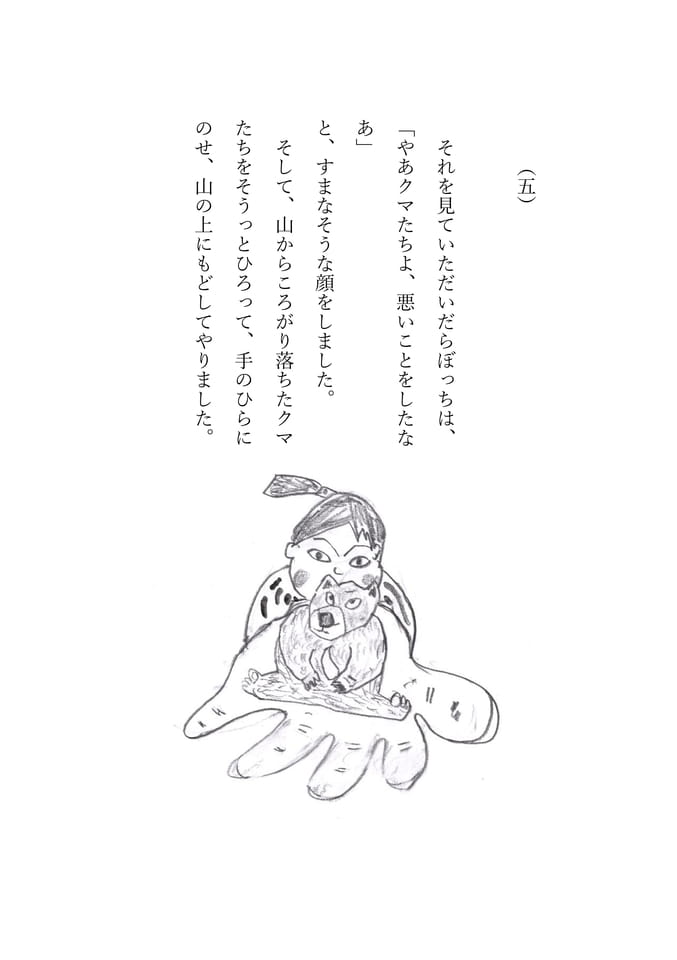 （五）
それを見ていただいだらぼっちは、
「やあクマたちよ、悪いことをしたな
あ」
と、すまなそうな顔をしました。
そして、山からころがり落ちたクマ
たちをそうっとひろって、手のひらに
のせ、山の上にもどしてやりました。